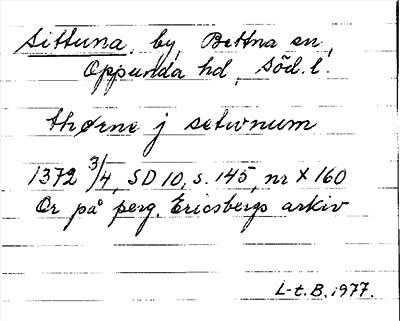 Sittuna, by, Bettna sn,
Oppunda hd, Söd. l.
thørne j setwnum
1372 3/4, SD 10, s. 145, nr X 160
Or på perg. Ericsbergs arkiv
L-t. B. 1977.